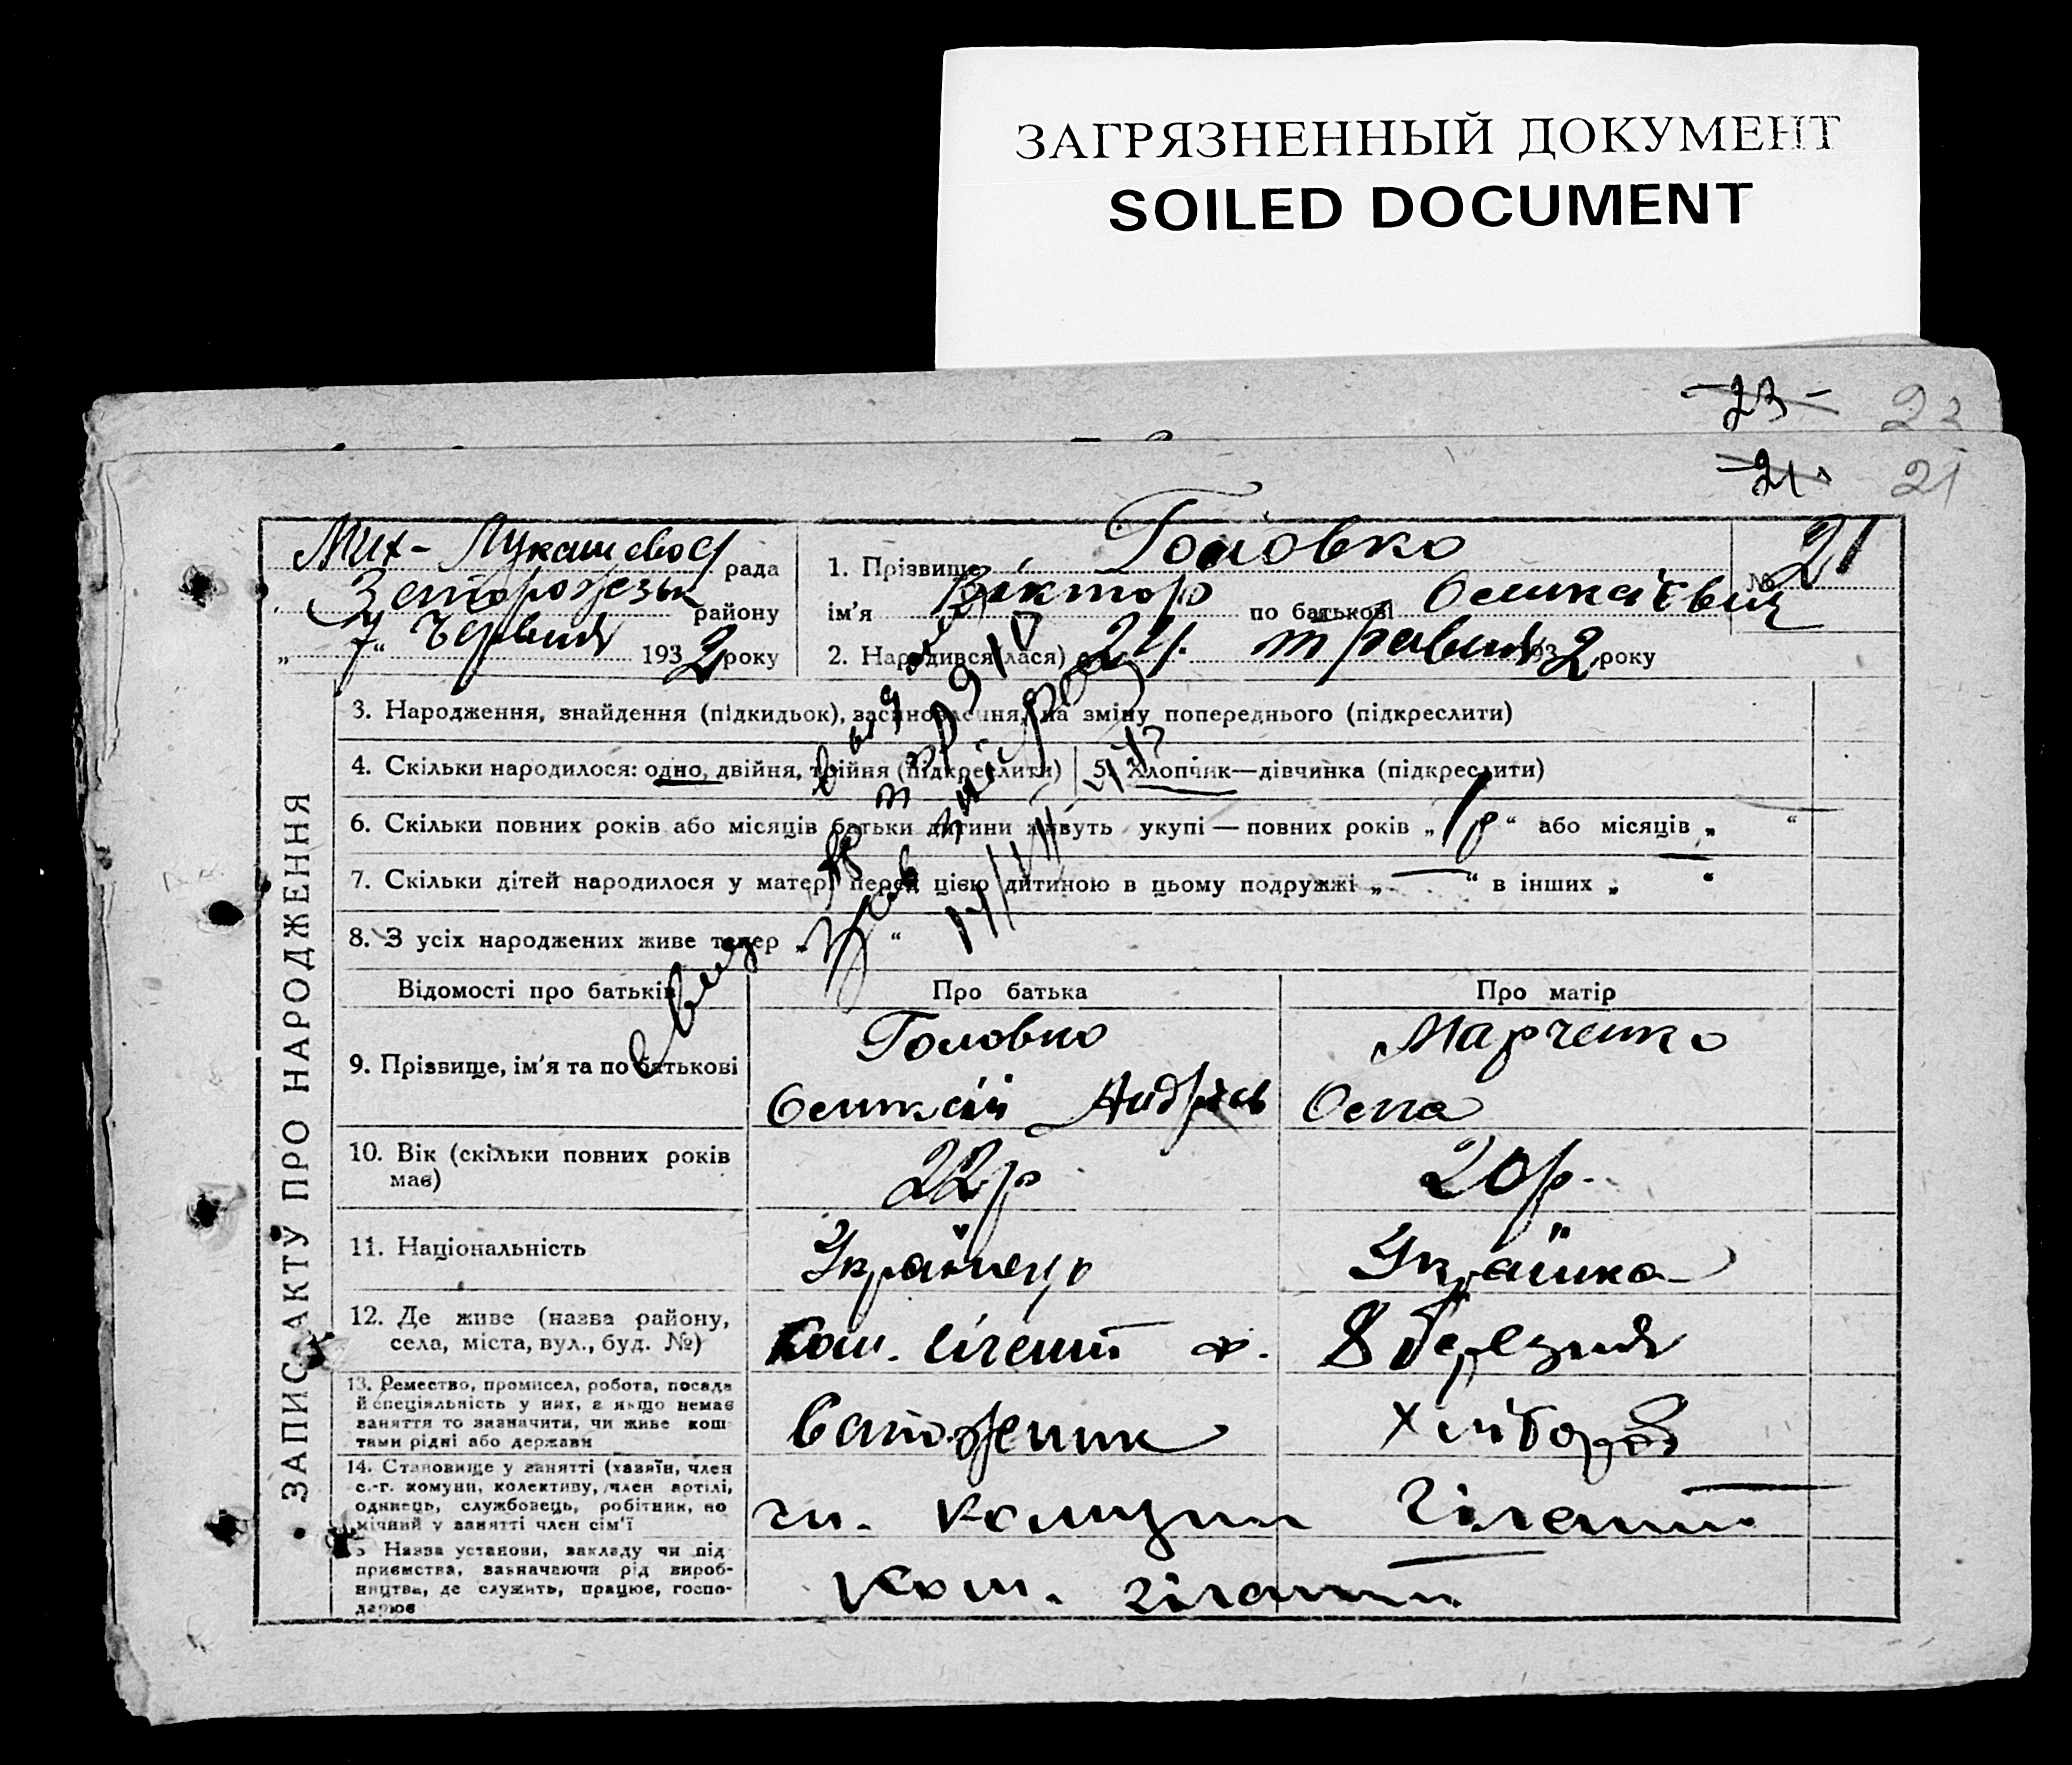 ЗАГРЯЗНЕННЫЙ ДОКУМЕНТ
SOILED DOCUMENT
23 23
21 21
Мих-Лукашевос рада
району
„7“ червня 1932 року
1. Прізвище Головко
ім'я Віктор по батькові
№ 21
2. Народився(лася) 24. травня 1932 року
ЗАПИС АКТУ ПРО НАРОДЖЕННЯ
3. Народження, знайдення (підкидьок), засиновлення, на зміну попереднього (підкреслити)
4. Скільки народилося: одно, двійня, трійня (підкреслити) 5. Хлопчик—дівчинка (підкреслити)
6. Скільки повних років або місяців батьки дитини живуть укупі — повних років „1р“ або місяців „—“
7. Скільки дітей народилося у матері перед цією дитиною в цьому подружжі „—“ в інших „—“
8. З усіх народжених живе тепер „ “
Відомості про батьків Про батька Про матір
9. Прізвище, ім'я та по батькові
Головко Марченко
10. Вік (скільки повних років має) 22р 20р.
11. Національність Українець Українка
12. Де живе (назва району, села, міста, вул., буд. №)
Ком. гігант х. 8 березня
13. Ремество, промисел, робота, посада
й спеціяльність у них, а якщо немає
заняття то зазначити, чи живе кош-
тами рідні або держави
14. Становище у занятті (хазяїн, член
с.-г. комуни, колективу, член артілі,
одинець, службовець, робітник, по
мічний у занятті член сім'ї
чл. комуни Гігант
Назва установи, закладу чи під-
приємства, зазначаючи рід вироб-
ництва, де служить, працює, госпо-
дарює
Ком. гігант